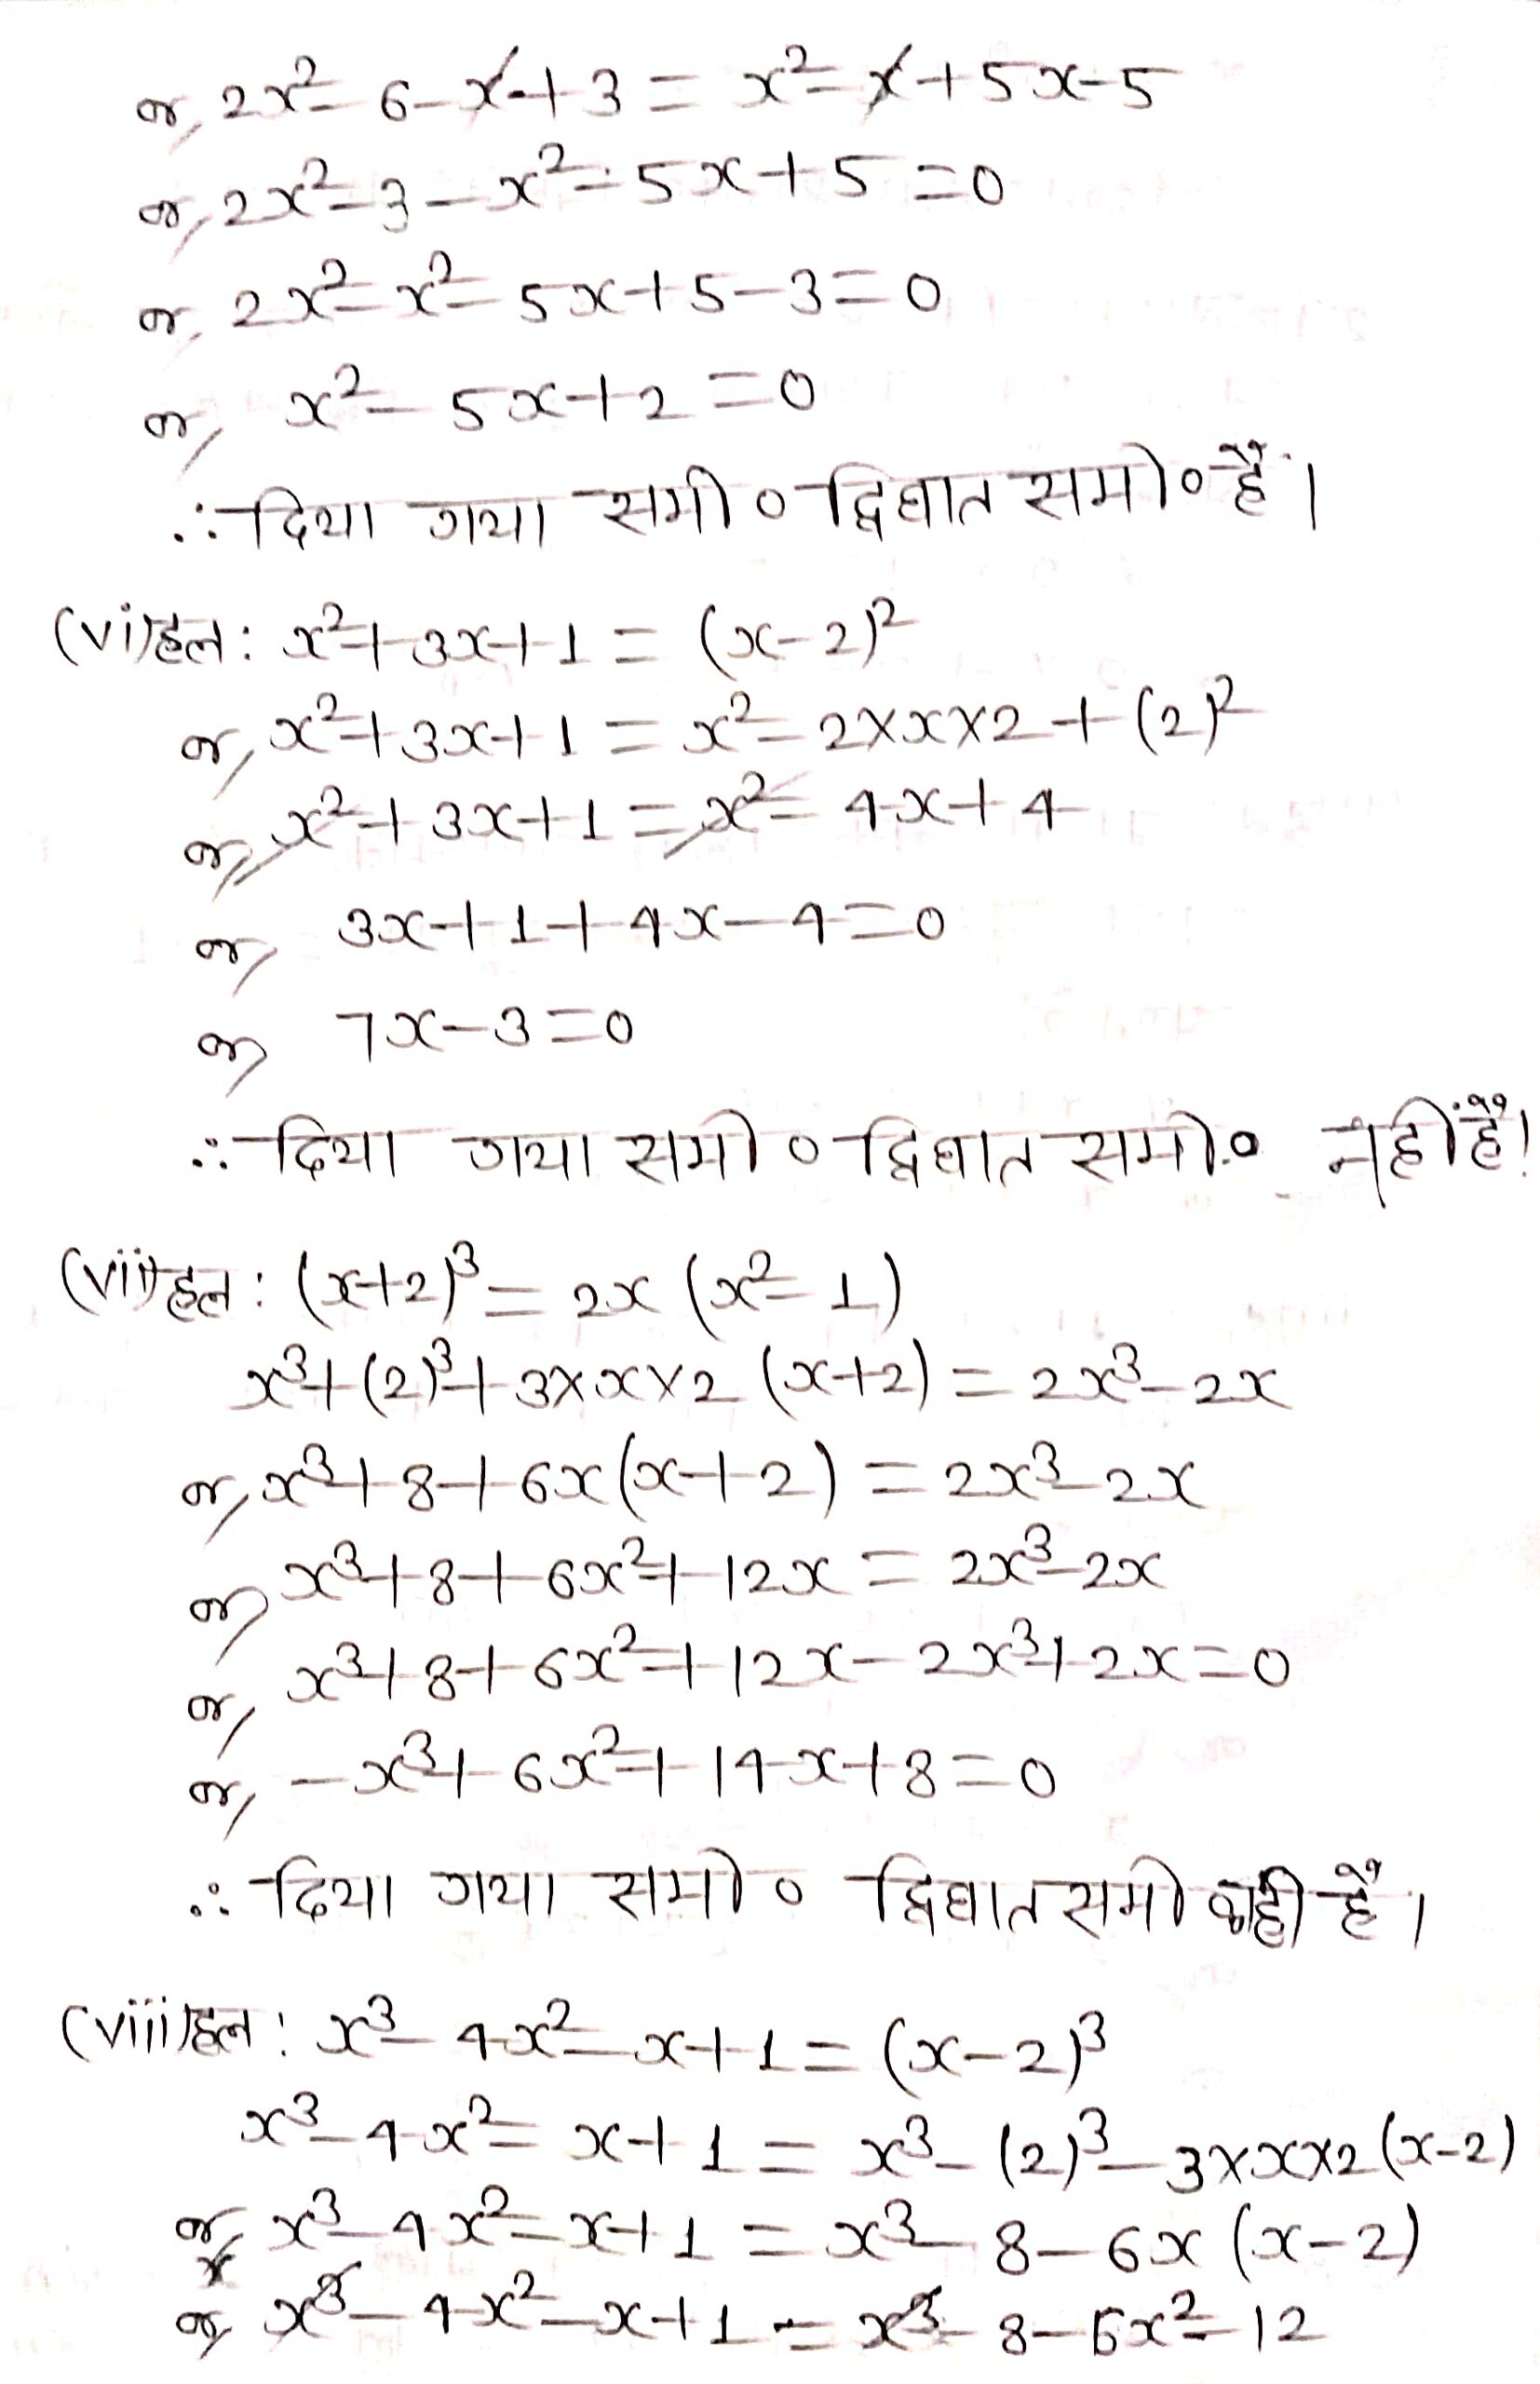 or, 2x² - 6 - x + 3 = x² - x + 5x - 5
or, 2x² - 3 - x² - 5x + 5 = 0
or, 2x² - x² - 5x + 5 - 3 = 0
or, x² - 5x + 2 = 0
∴ दिया गया समी० द्विघात समी० हैं।
(vi) हल: x² + 3x + 1 = (x - 2)²
or, x² + 3x + 1 = x² - 2×x×2 + (2)²
or, x² + 3x + 1 = x² - 4x + 4
or, 3x + 1 + 4x - 4 = 0
or, 7x - 3 = 0
∴ दिया गया समी० द्विघात समी० नहीं हैं।
(vii) हल: (x+2)³ = 2x (x² - 1)
x³ + (2)³ + 3×x×2 (x+2) = 2x³ - 2x
or, x³ + 8 + 6x (x+2) = 2x³ - 2x
or, x³ + 8 + 6x² + 12x = 2x³ - 2x
or, x³ + 8 + 6x² + 12x - 2x³ + 2x = 0
or, -x³ + 6x² + 14x + 8 = 0
∴ दिया गया समी० द्विघात समी हैं।
(viii) हल: x³ - 4x² - x + 1 = (x - 2)³
x³ - 4x² - x + 1 = x³ - (2)³ - 3×x×2 (x-2)
or, x³ - 4x² - x + 1 = x³ - 8 - 6x (x - 2)
or, x³ - 4x² - x + 1 = x³ - 8 - 6x² - 12